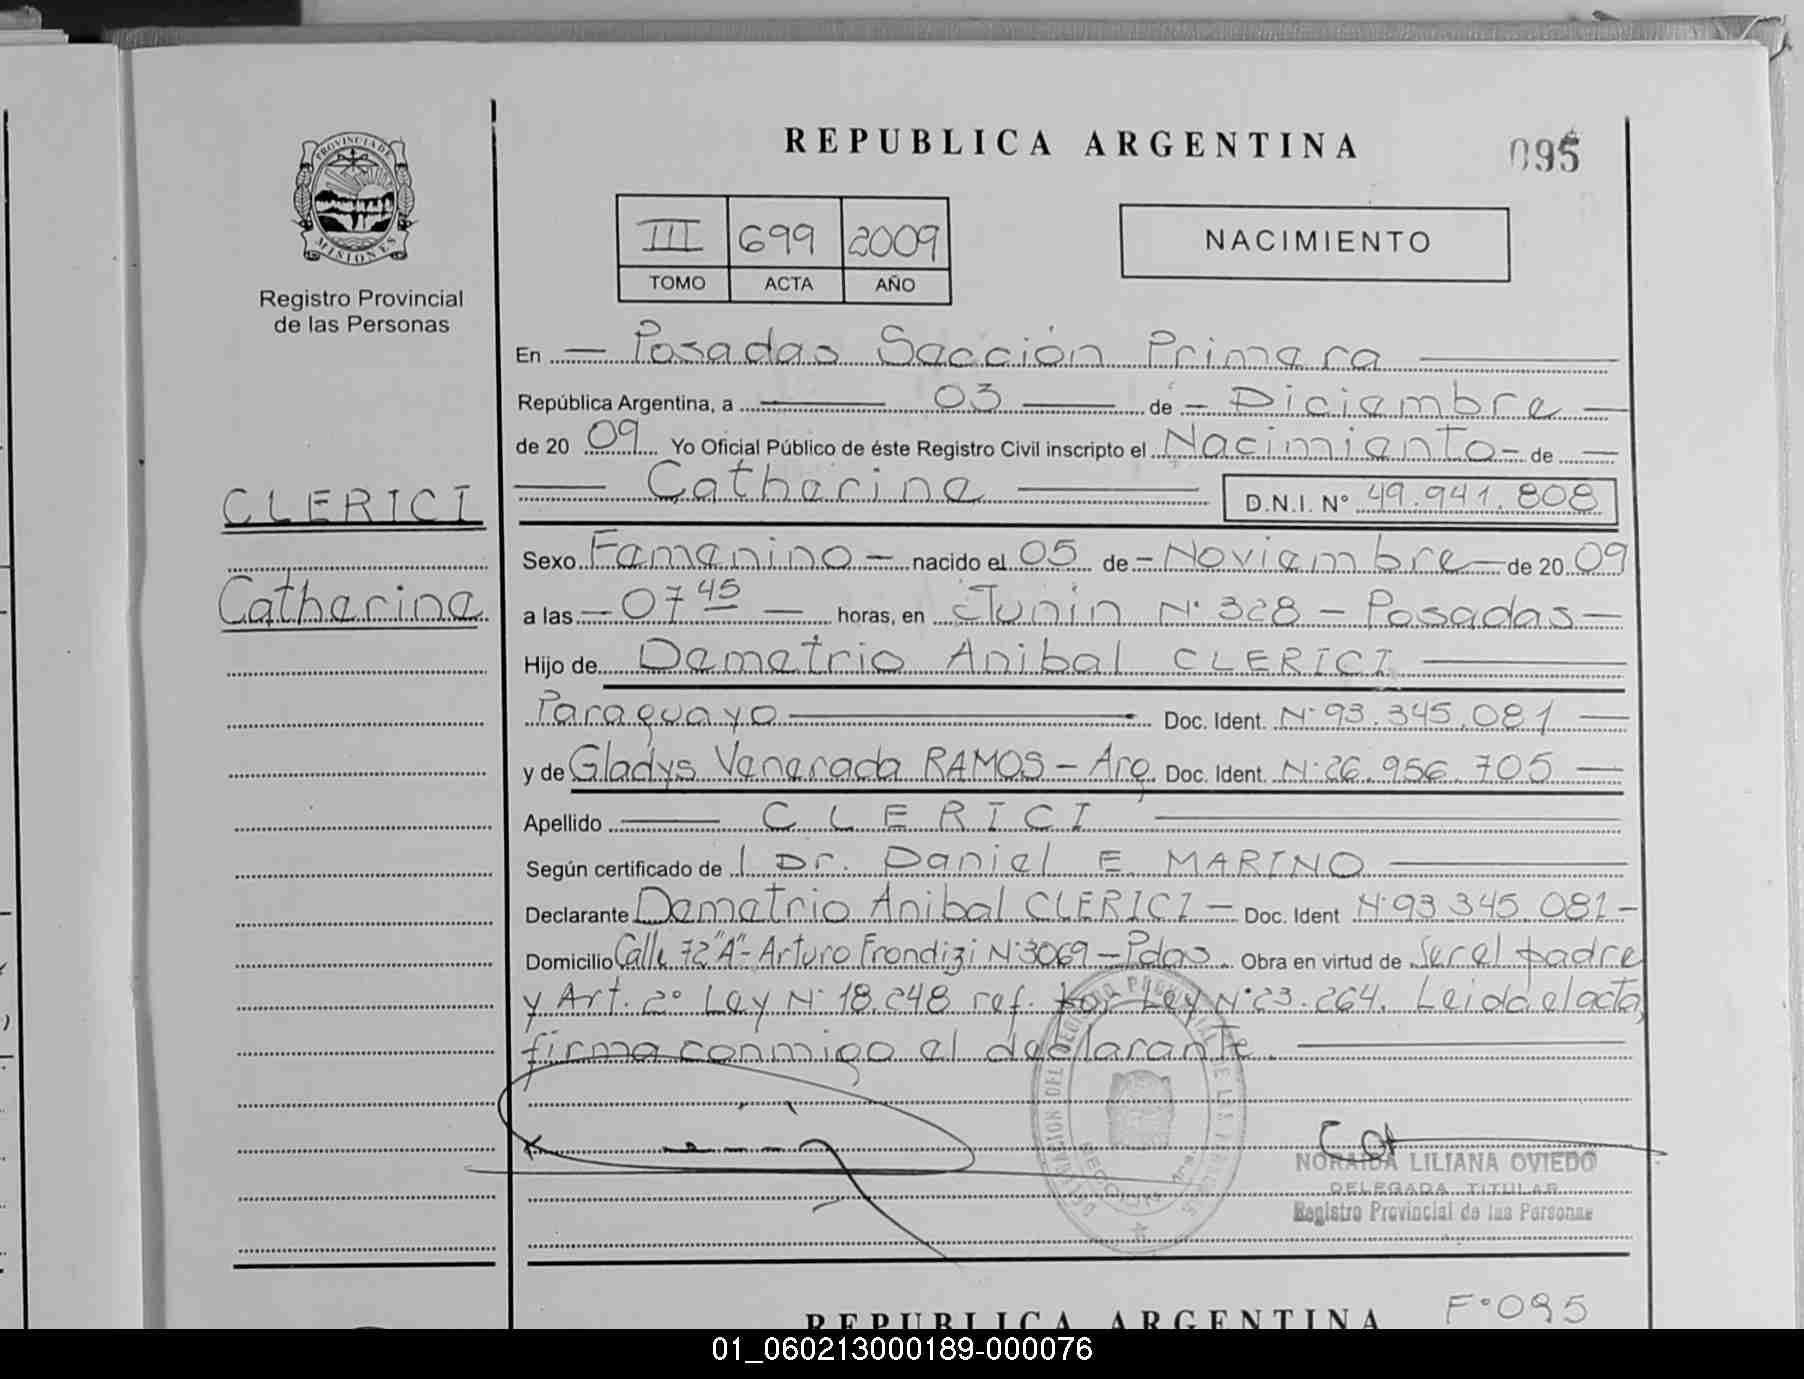 REPUBLICA ARGENTINA
095
PROVINCIA DE MISIONES
Registro Provincial
de las Personas
III 699 2009
TOMO ACTA AÑO
NACIMIENTO
En Posadas Sección Primera
República Argentina, a 03 de Diciembre
de 20 09 Yo Oficial Público de éste Registro Civil inscripto el Nacimiento de
Catherine D.N.I. N° 49.941.808
CLERICI
Catherine
Sexo Femenino nacido el 05 de Noviembre de 20 09
a las 07 45 horas, en Junín N° 328 - Posadas
Hijo de Demetrio Anibal CLERICI
Paraguayo Doc. Ident. N° 93.345.081
y de Gladys Venerada RAMOS - Arg. Doc. Ident. N° 26.956.705
Apellido CLERICI
Según certificado de l Dr. Daniel E. MARINO
Declarante Demetrio Anibal CLERICI - Doc. Ident N° 93.345.081-
Domicilio Calle 72 "A"- Arturo Frondizi N° 3069 - Pdas. Obra en virtud de Ser el padre
y Art. 2° Ley N° 18.248 ref. por Ley N° 23.264. Leida el acta,
firma conmigo el declarante.
NORAIDA LILIANA OVIEDO
DELEGADA TITULAR
Registro Provincial de las Personas
REPUBLICA ARGENTINA
F° 095
01_060213000189-000076